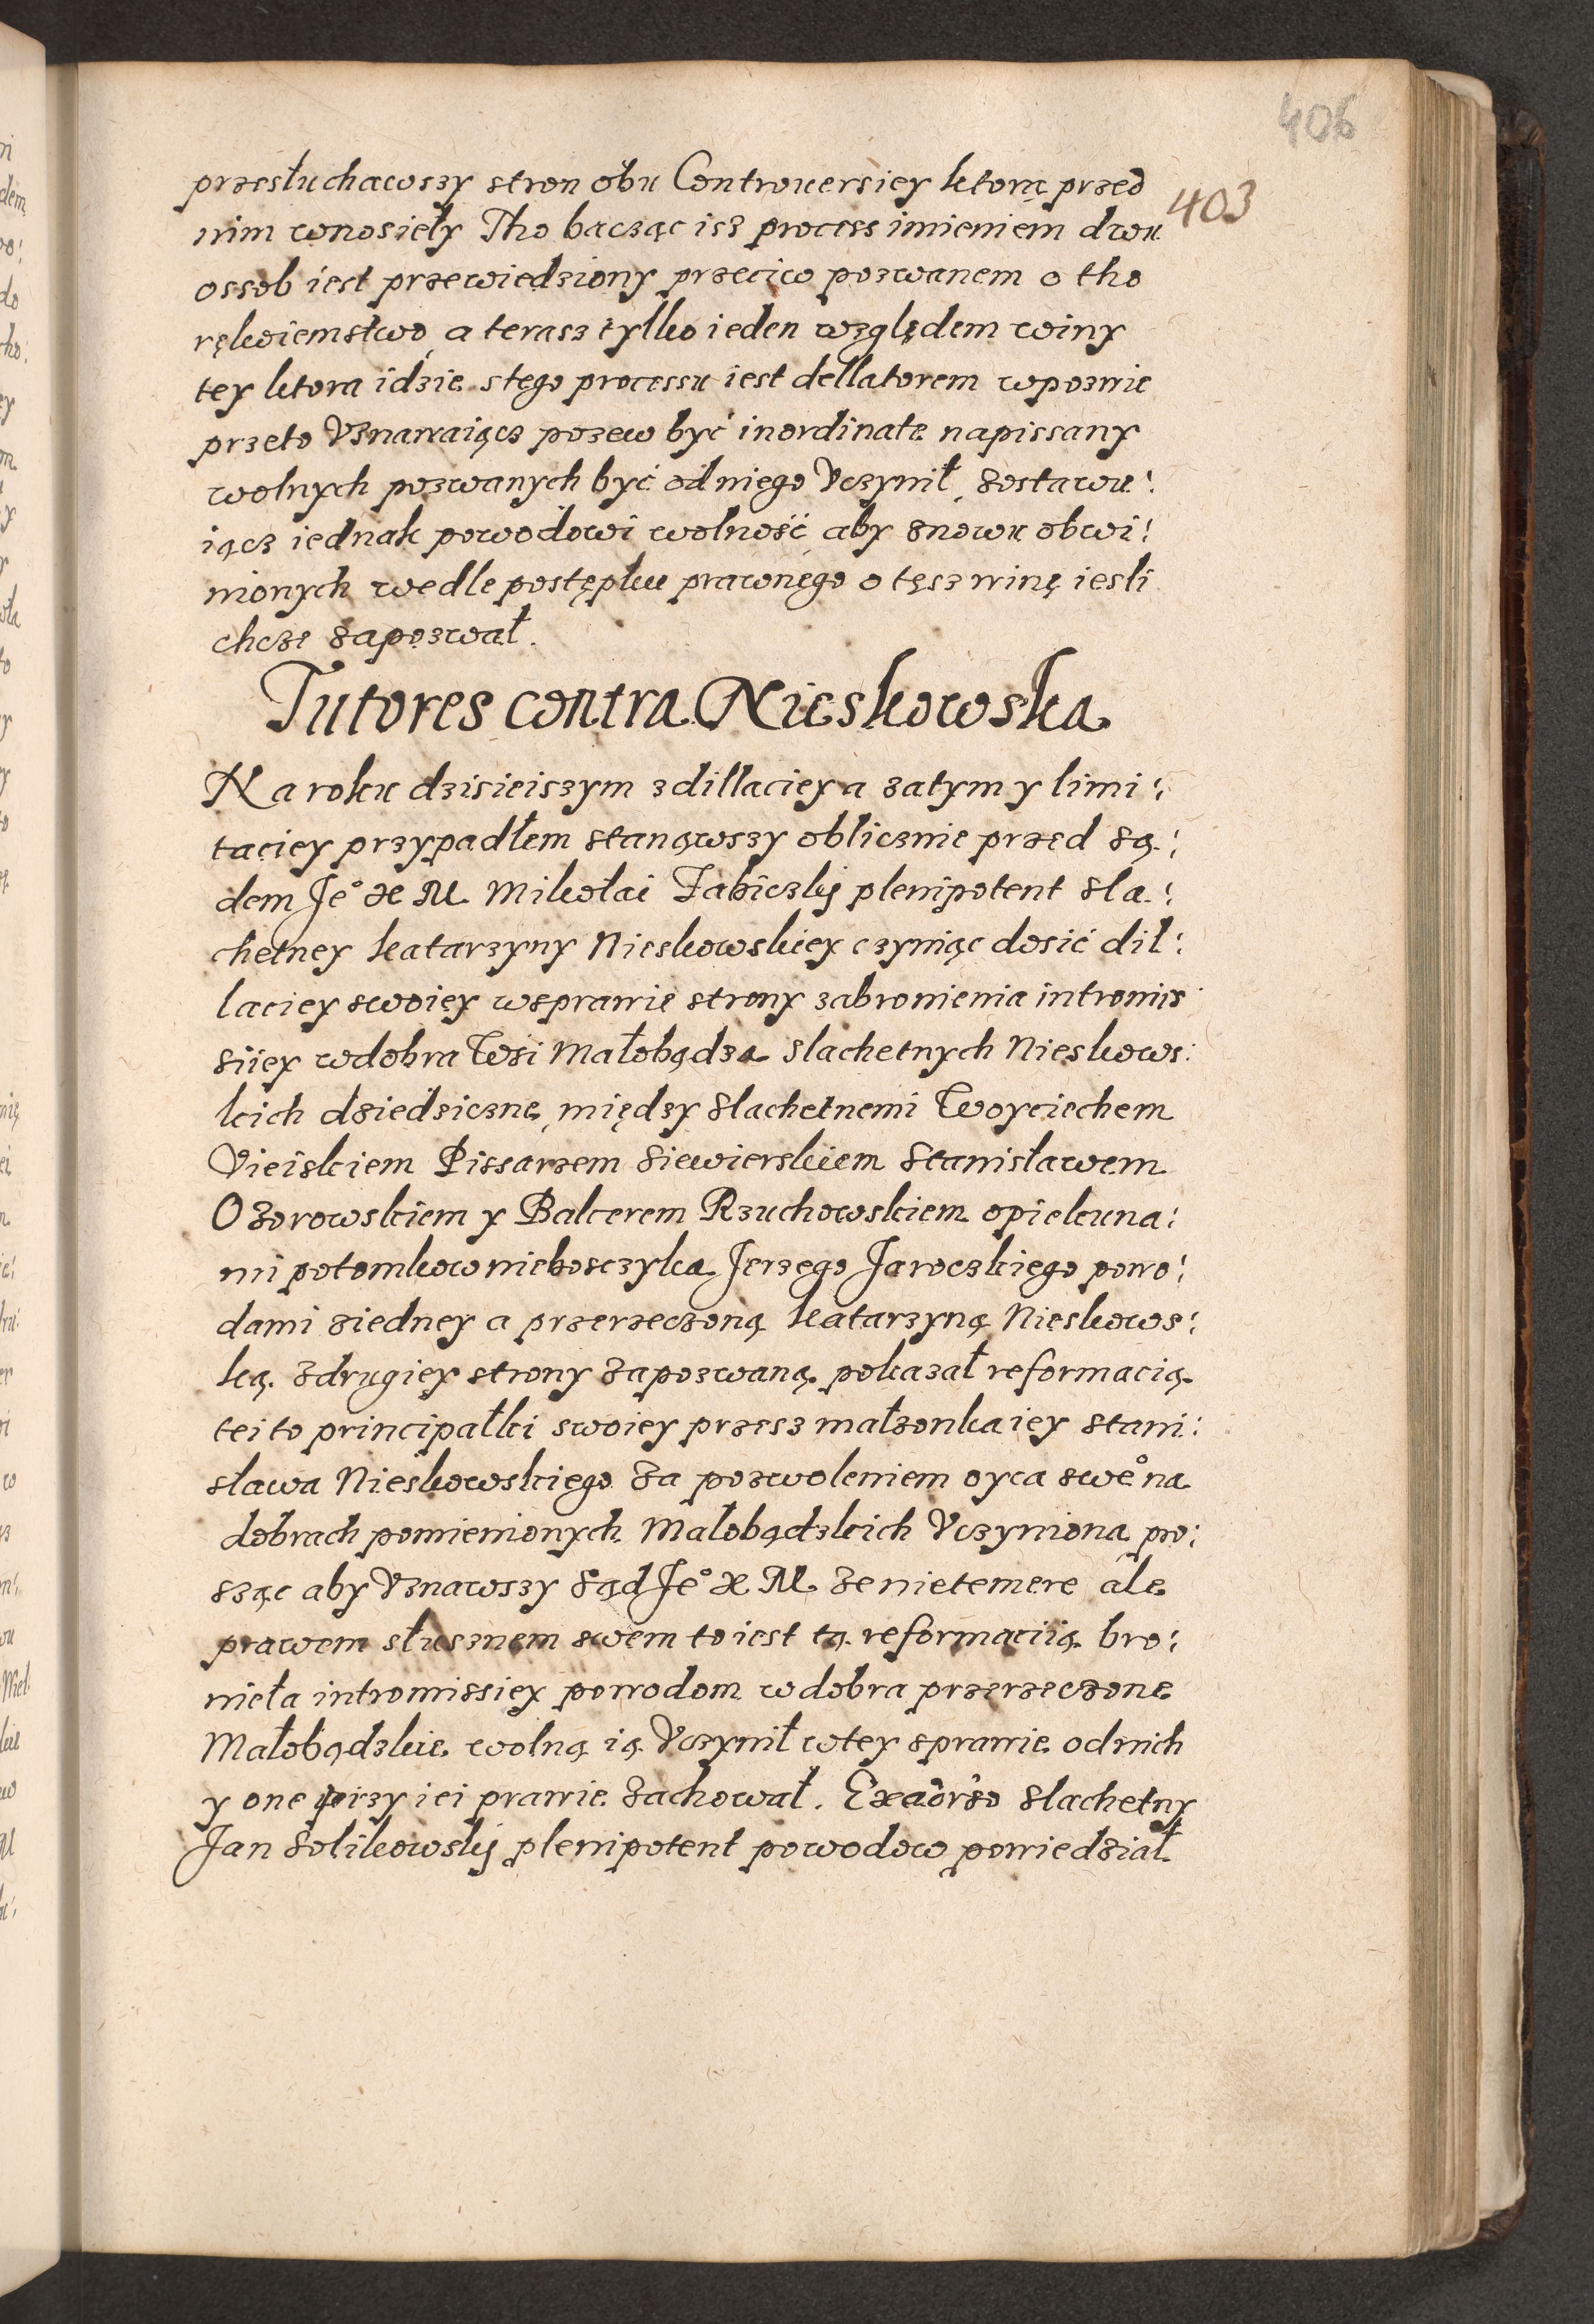 406
403
przesłuchawszy stron obu Controuersiey ktorą przed
nim wnosieły Tho bacząc isz process imieniem dwu
ossob iest przewiedziony przeciw pozwanem o tho
rękoiemstwo, a terasz tylko ieden względem winy
tey ktora idzie stego processu iest dellatorem wpozwie
przeto Vznawaiącz pozew być inordinate napissany
wolnych pozwanych być od niego Vczynił, zostawu:
iącz iednak powodowi wolność aby znowu obwi:
nionych wedle postępku prawnego o tęsz winę iesli
chcze zapozwał.
Tutores contra Nieskowska
Na roku dzisieiszym z dillaciey a zatym y limi:
taciey przypadłem stanąwszy oblicznie przed są:
dem Je° X M. Mikołai Fabiczkij plenipotent sla:
chetney Katarzyny Nieskowskiey czyniąc dosić dil:
laciey swoiey wsprawie strony zabronienia intromis
siiey w dobra Wsi Małobądza slachetnych Nieskows:
kich dziedziczne, między slachetnemi Woyciechem
Vieiskiem Pissarzem Siewierskiem Stanisławem
Ozorowskiem y Balcerem Rzuchowskiem opiekuna:
mi potomkow nieboszczyka Jerzego Jaroczkiego powo:
dami ziedney a przerzeczoną Katarzyną Nieskows:
ką. zdrugiey strony zapozwaną. pokazał reformacią.
tei to principałki swoiey przesz małzonka iey Stani:
sława Nieskowskiego za pozwoleniem oyca swe° na
dobrach pomienionych Małobądzkich Vczyniona pro:
sząc aby Vznawszy sąd Je° X M. ze nie temere ale
prawem słusznem swem to iest tą. reformaciią. bro:
nieła intromissiey powodom w dobra przerzeczone
Małobądzkie. wolną ią. Vczynił w tey sprawie od nich
y one przy iei prawie zachował. Slachetny
Jan Solikowskij plenipotent powodow powiedział